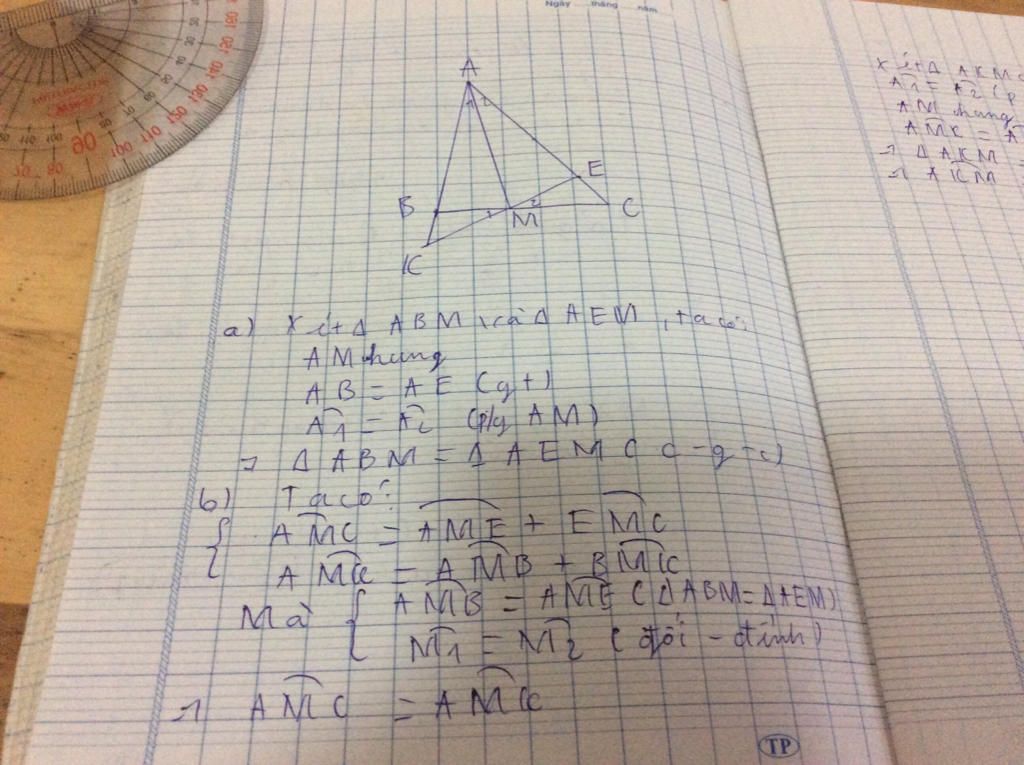 Ngày tháng năm
A
1 2
E
B
1
M
2
C
K
a) Xét Δ ABM và Δ AEM, ta có:
AM chung
AB = AE (gt)
Â1 = Â2 (p/g AM)
⇒ Δ ABM = Δ AEM (c-g-c)
b) Ta có:
{ AM̂C = AM̂E + EM̂C
AM̂K = AM̂B + BM̂K
Mà { AM̂B = AM̂E (Δ ABM = Δ AEM)
M̂1 = M̂2 (đối - đỉnh)
⇒ AM̂C = AM̂K
TP
Xét Δ AKM
Â1 = Â2 (p
AM chung
AM̂K = A
⇒ Δ AKM =
⇒ AK̂M
90